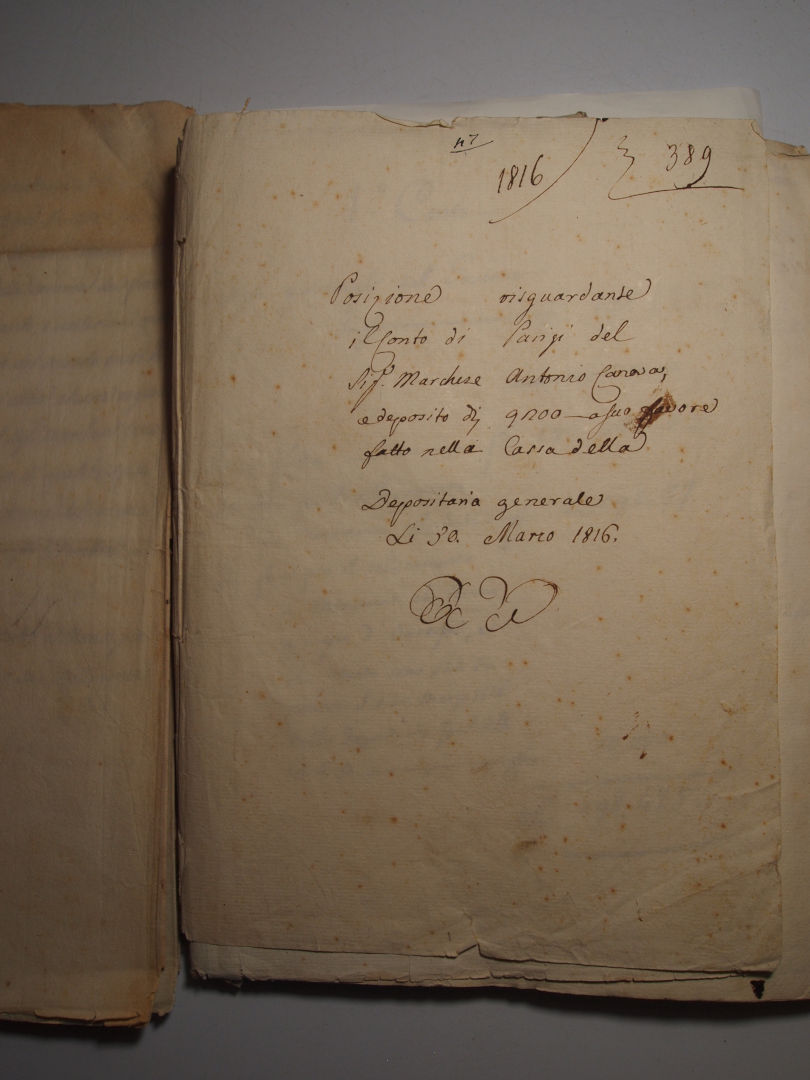 47
1816
389
Posizione risguardante
il Conto di Parigi del
Sig.r Marchese Antonio Canova,
e deposito di 9200 a suo favore
fatto nella Cassa della
Depositaria generale
Li 30. Marzo 1816.